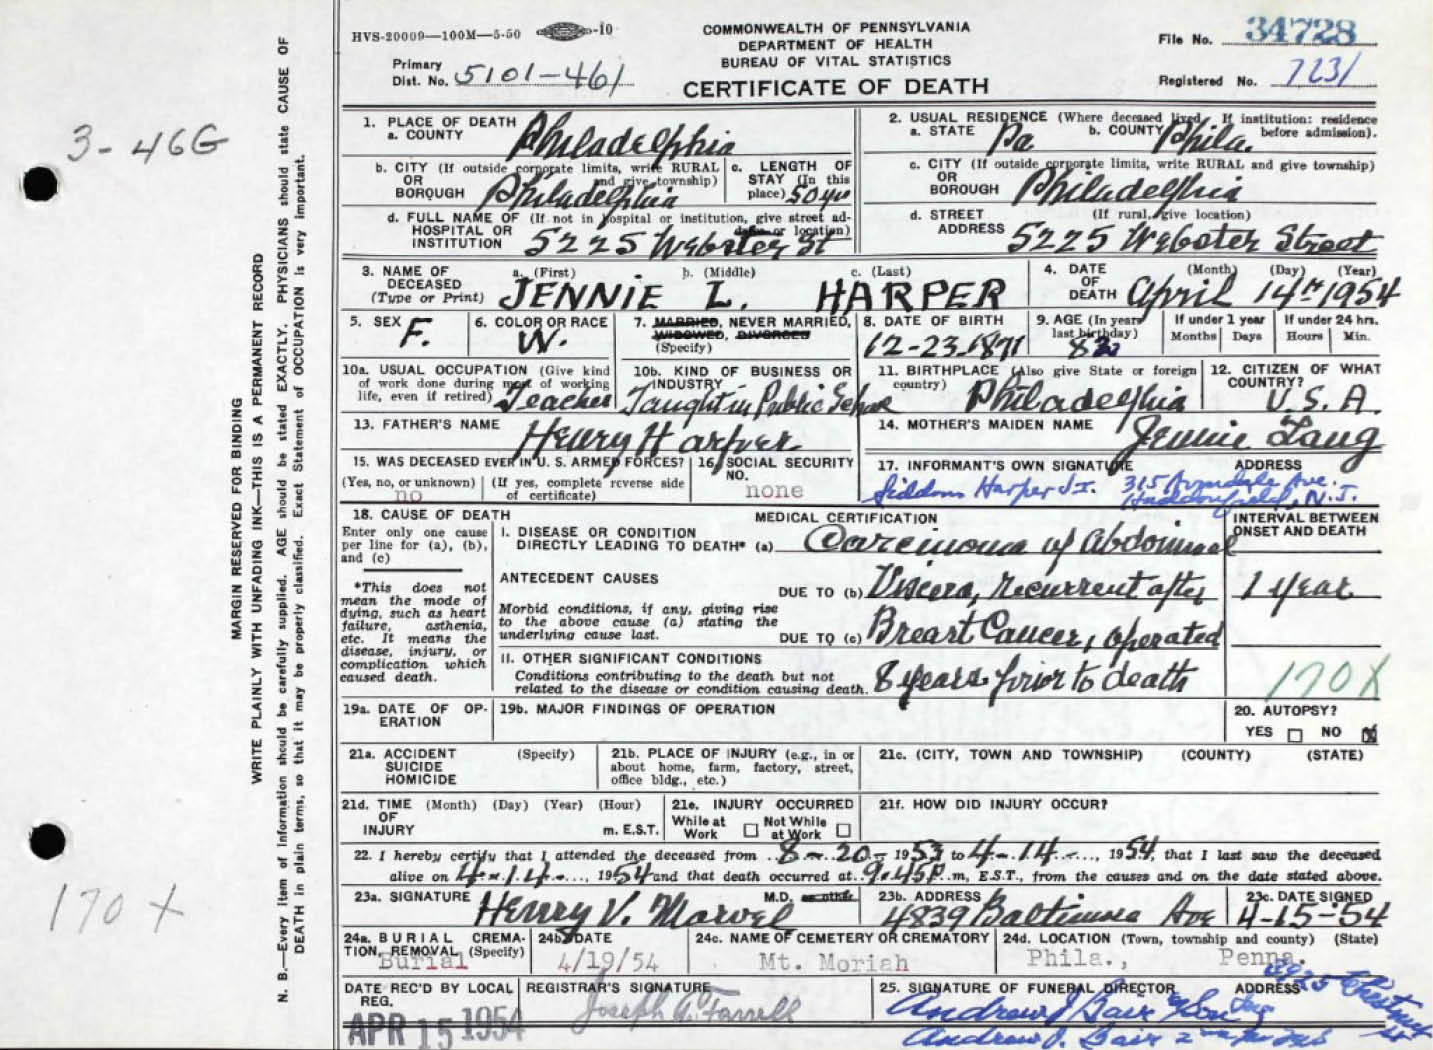 HVS-20009—100M—5-50 -10
COMMONWEALTH OF PENNSYLVANIA
DEPARTMENT OF HEALTH
BUREAU OF VITAL STATISTICS
CERTIFICATE OF DEATH
File No. 34728
Primary
Dist. No. 5101-461
Registered No. 7231
3-46G
170 X
MARGIN RESERVED FOR BINDING
WRITE PLAINLY WITH UNFADING INK—THIS IS A PERMANENT RECORD
N. B.—Every item of information should be carefully supplied. AGE should be stated EXACTLY. PHYSICIANS should state CAUSE OF
DEATH in plain terms, so that it may be properly classified. Exact Statement of OCCUPATION is very important.
1. PLACE OF DEATH
a. COUNTY Philadelphia
2. USUAL RESIDENCE (Where deceased lived. If institution: residence
a. STATE Pa b. COUNTY Phila. before admission).
b. CITY (If outside corporate limits, write RURAL
OR and give township)
BOROUGH Philadelphia
c. LENGTH OF
STAY (In this
place) 50 yrs
c. CITY (If outside corporate limits, write RURAL and give township)
OR
BOROUGH Philadelphia
d. FULL NAME OF (If not in hospital or institution, give street ad-
HOSPITAL OR dress or location)
INSTITUTION 5225 Webster St
d. STREET (If rural, give location)
ADDRESS 5225 Webster Street
3. NAME OF a. (First) b. (Middle) c. (Last)
DECEASED
(Type or Print) JENNIE L. HARPER
4. DATE (Month) (Day) (Year)
OF
DEATH April 14th 1954
5. SEX F.
6. COLOR OR RACE
W.
7. MARRIED, NEVER MARRIED,
WIDOWED, DIVORCED
(Specify)
8. DATE OF BIRTH
12-23-1871
9. AGE (In years
last birthday)
82
If under 1 year
Months Days
If under 24 hrs.
Hours Min.
10a. USUAL OCCUPATION (Give kind
of work done during most of working
life, even if retired) Teacher
10b. KIND OF BUSINESS OR
INDUSTRY
Taught in Public School
11. BIRTHPLACE (Also give State or foreign
country) Philadelphia
12. CITIZEN OF WHAT
COUNTRY?
U.S.A.
13. FATHER'S NAME Henry Harper
14. MOTHER'S MAIDEN NAME Jennie Lang
15. WAS DECEASED EVER IN U. S. ARMED FORCES?
(Yes, no, or unknown) (If yes, complete reverse side
no of certificate)
16. SOCIAL SECURITY
NO.
none
17. INFORMANT'S OWN SIGNATURE ADDRESS
Siddons Harper Jr. 315 Avondale Ave.
Haddonfield, N.J.
18. CAUSE OF DEATH
Enter only one cause
per line for (a), (b),
and (c)
*This does not
mean the mode of
dying, such as heart
failure, asthenia,
etc. It means the
disease, injury, or
complication which
caused death.
MEDICAL CERTIFICATION
I. DISEASE OR CONDITION
DIRECTLY LEADING TO DEATH* (a) Carcinoma of Abdominal
ANTECEDENT CAUSES
DUE TO (b) Viscera, recurrent after
Morbid conditions, if any, giving rise
to the above cause (a) stating the
underlying cause last.
DUE TO (c) Breast Cancer, operated
II. OTHER SIGNIFICANT CONDITIONS
Conditions contributing to the death but not
related to the disease or condition causing death. 8 years prior to death
INTERVAL BETWEEN
ONSET AND DEATH
1 year
170X
19a. DATE OF OP-
ERATION
19b. MAJOR FINDINGS OF OPERATION
20. AUTOPSY?
YES NO X
21a. ACCIDENT (Specify)
SUICIDE
HOMICIDE
21b. PLACE OF INJURY (e.g., in or
about home, farm, factory, street,
office bldg., etc.)
21c. (CITY, TOWN AND TOWNSHIP) (COUNTY) (STATE)
21d. TIME (Month) (Day) (Year) (Hour)
OF
INJURY m. E.S.T.
21e. INJURY OCCURRED
While at Not While
Work at Work
21f. HOW DID INJURY OCCUR?
22. I hereby certify that I attended the deceased from 8-20-1953 to 4-14-, 1954, that I last saw the deceased
alive on 4-14-, 1954 and that death occurred at 9:45P m, E.S.T., from the causes and on the date stated above.
23a. SIGNATURE M.D. or other
Henry V. Marvel
23b. ADDRESS
4839 Baltimore Ave
23c. DATE SIGNED
4-15-54
24a. BURIAL CREMA-
TION, REMOVAL (Specify)
Burial
24b. DATE
4/19/54
24c. NAME OF CEMETERY OR CREMATORY
Mt. Moriah
24d. LOCATION (Town, township and county) (State)
Phila., Penna.
DATE REC'D BY LOCAL
REG.
APR 15 1954
REGISTRAR'S SIGNATURE
Joseph A. Farrell
25. SIGNATURE OF FUNERAL DIRECTOR ADDRESS
Andrew J Bair & Son Inc 3925 Chestnut St
Andrew J. Bair 2nd